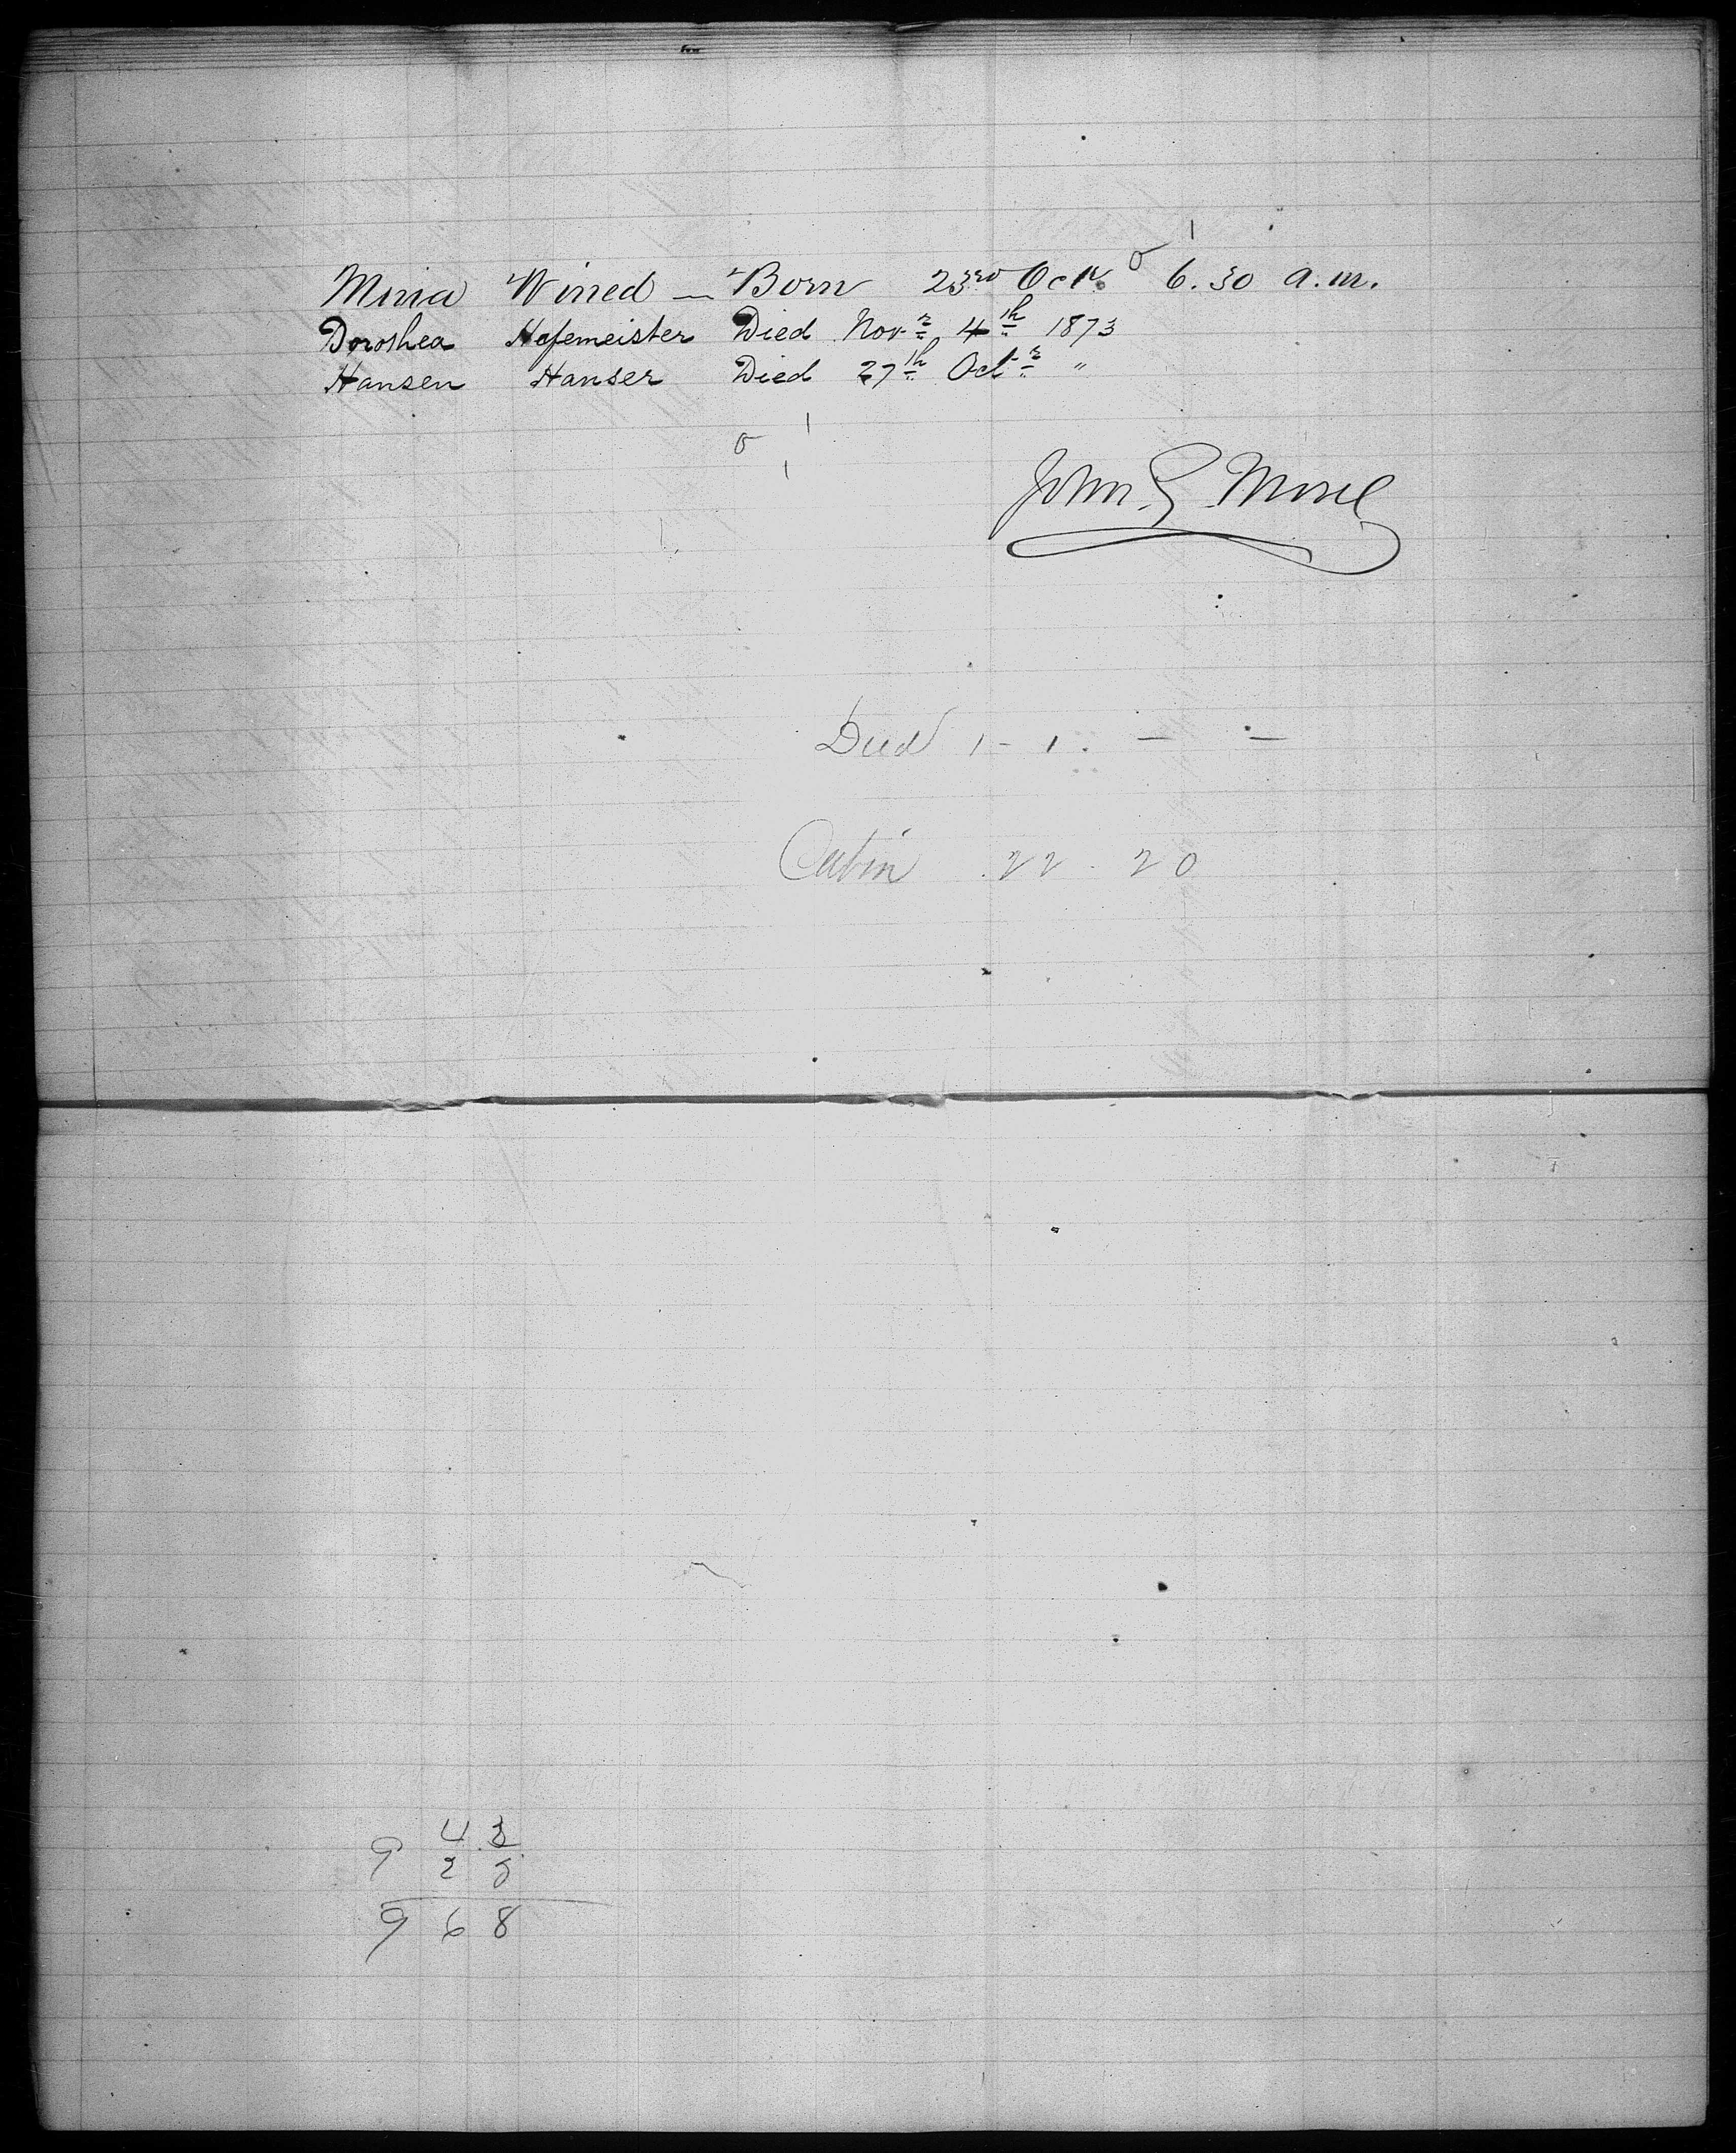 Minia Wined — Born 23rd Octr. 6.30 a.m.
Doroshea Hofemeister Died Novr 4th 1873
Hansen Hanser Died 27th Octr "
John. G. Morse
Died 1 - 1. — —
Cabin 22 - 20
9 43
25
968